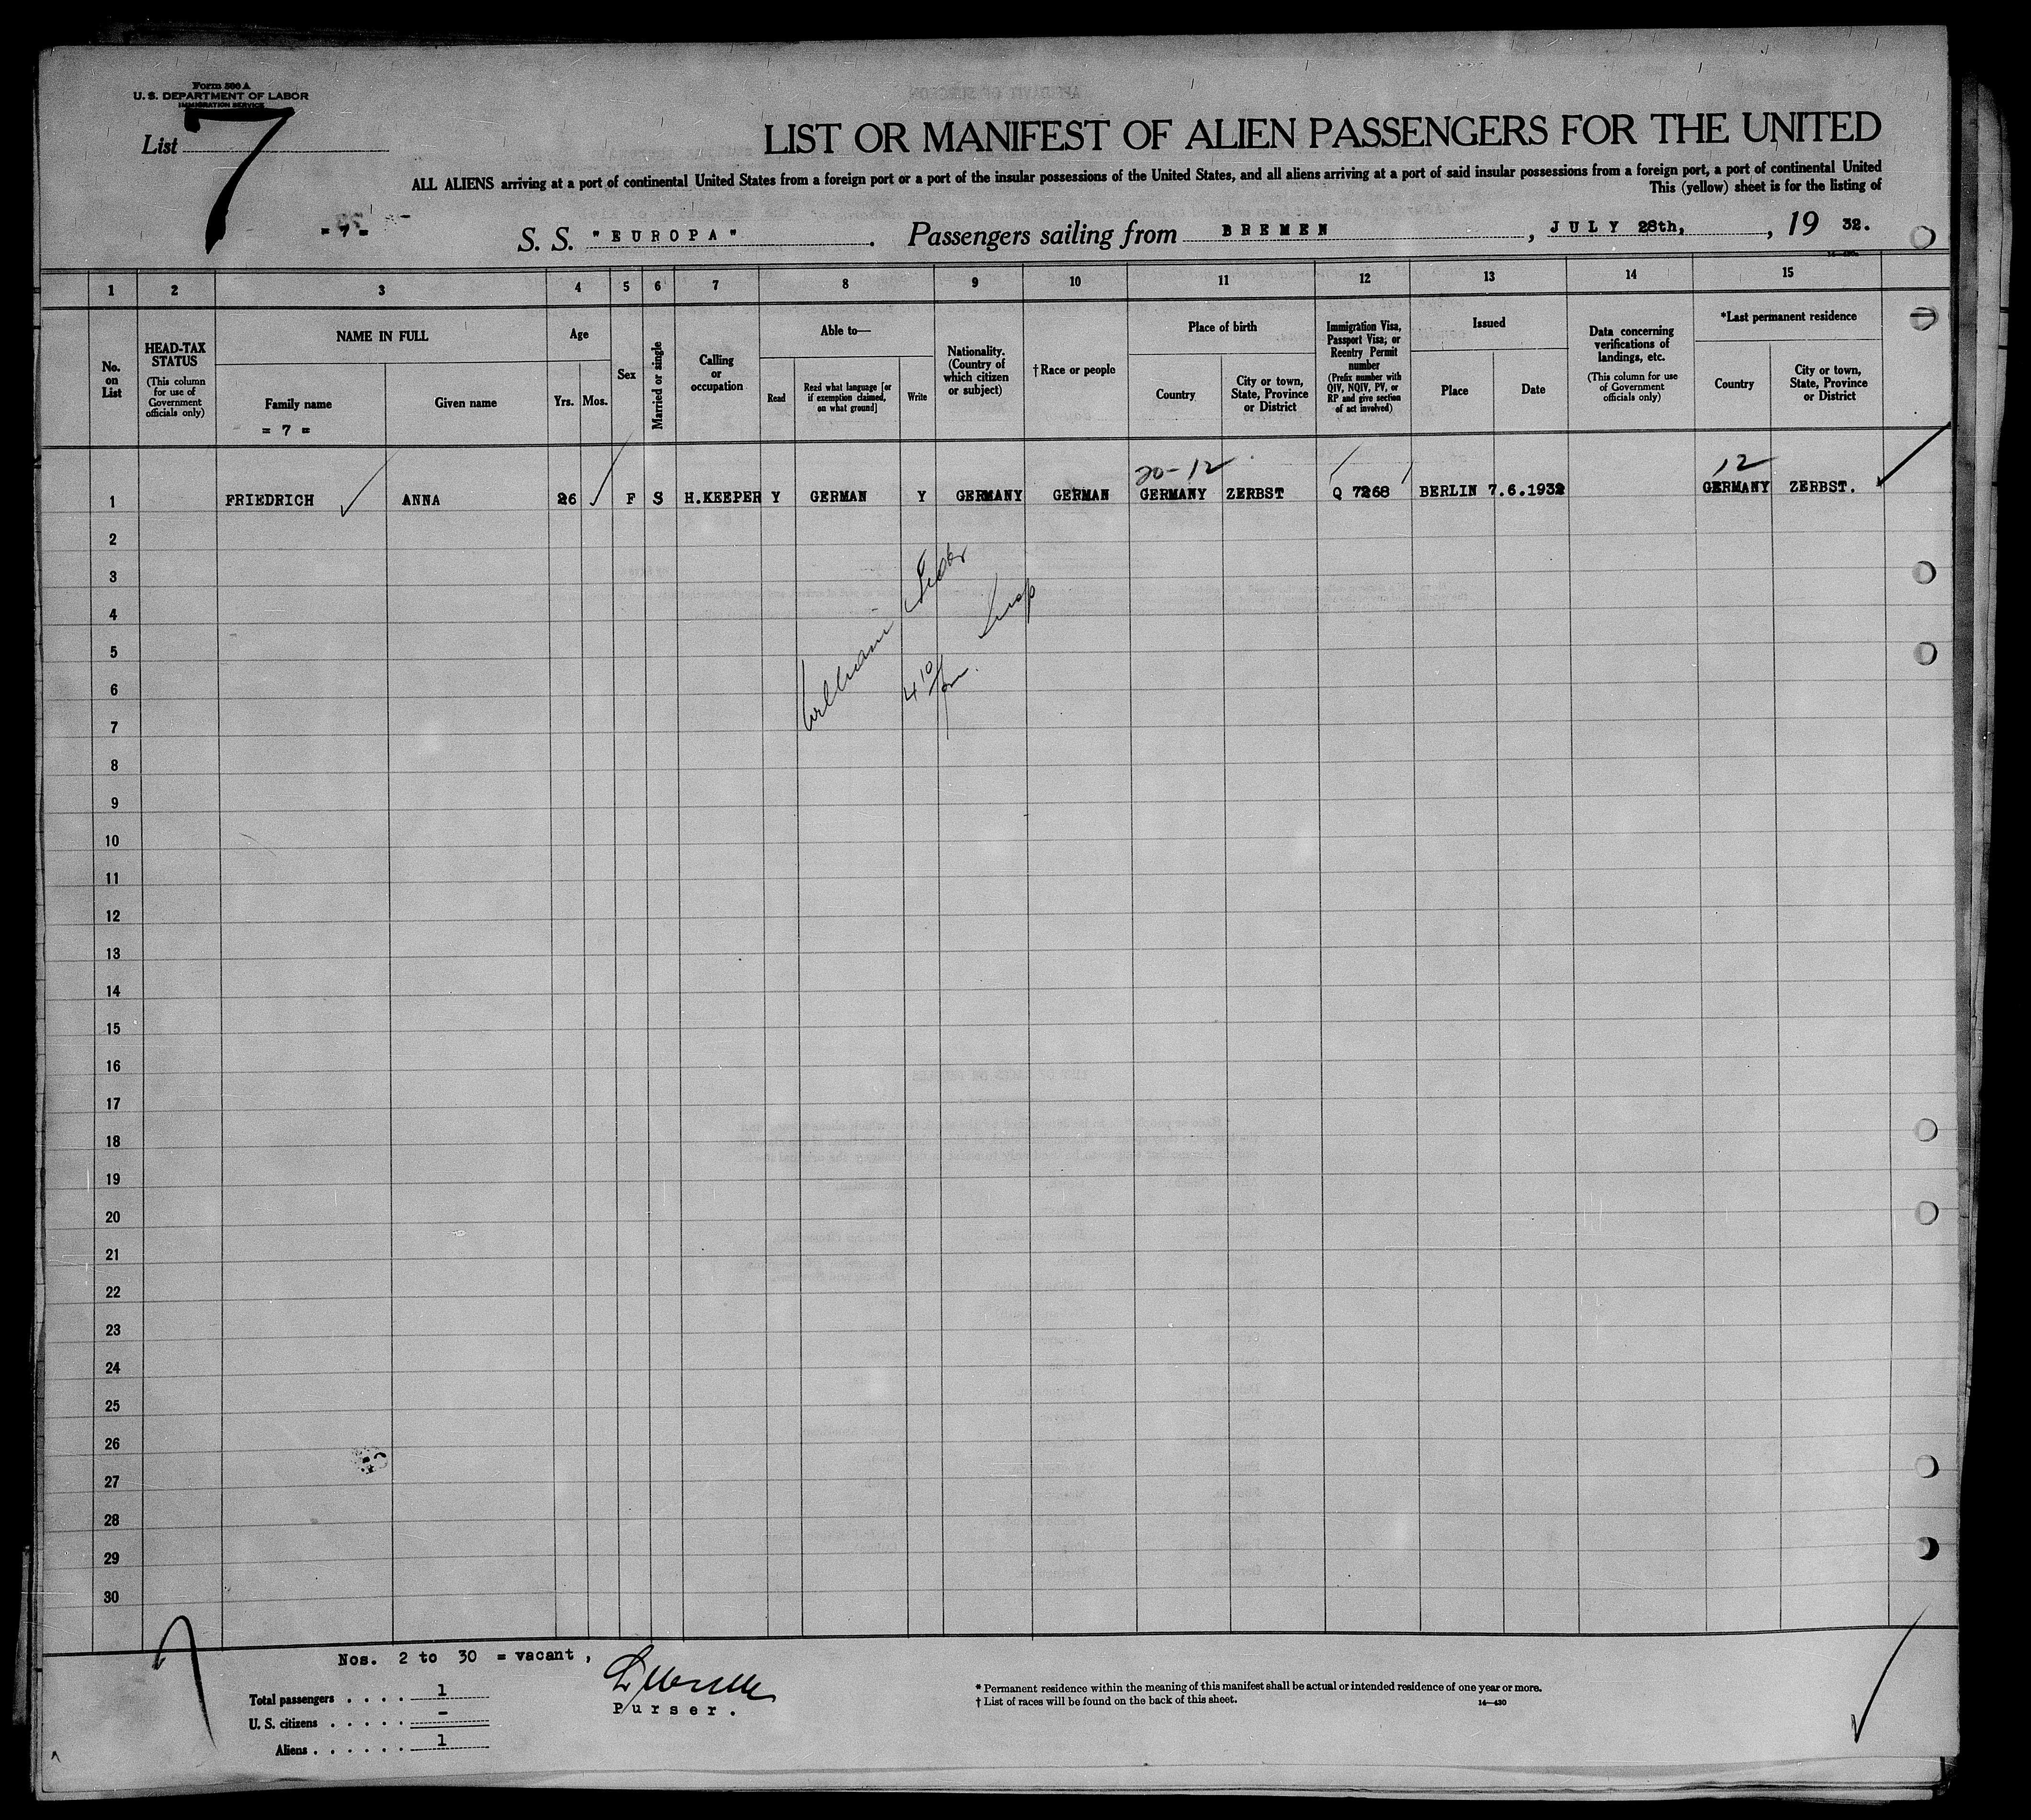 Form 500 A
U. S. DEPARTMENT OF LABOR
IMMIGRATION SERVICE
List 7
LIST OR MANIFEST OF ALIEN PASSENGERS FOR THE UNITED
ALL ALIENS arriving at a port of continental United States from a foreign port or a port of the insular possessions of the United States, and all aliens arriving at a port of said insular possessions from a foreign port, a port of continental United
This (yellow) sheet is for the listing of
= 7 =
S. S. "EUROPA". Passengers sailing from BREMEN, JULY 28th, , 19 32.
1 2 3 4 5 6 7 8 9 10 11 12 13 14 15
No. on List
HEAD-TAX STATUS
(This column for use of Government officials only)
NAME IN FULL
Family name
= 7 =
Given name
Age
Yrs. Mos.
Sex
Married or single
Calling or occupation
Able to—
Read
Read what language [or if exemption claimed, on what ground]
Write
Nationality. (Country of which citizen or subject)
†Race or people
Place of birth
Country
City or town, State, Province or District
Immigration Visa, Passport Visa; or Reentry Permit number
(Prefix number with QIV, NQIV, PV, or RP and give section of act involved)
Issued
Place
Date
Data concerning verifications of landings, etc.
(This column for use of Government officials only)
*Last permanent residence
Country
City or town, State, Province or District
20-12 12
1 FRIEDRICH ANNA 26 F S H.KEEPER Y GERMAN Y GERMANY GERMAN GERMANY ZERBST Q 7268 BERLIN 7.6.1932 GERMANY ZERBST.
2
3
4
5
6
7
8
9
10
11
12
13
14
15
16
17
18
19
20
21
22
23
24
25
26
27
28
29
30
William
Insp
4 10/
Nos. 2 to 30 = vacant,
Total passengers . . . . 1
U. S. citizens . . . . . –
Aliens . . . . . . 1
Purser.
* Permanent residence within the meaning of this manifest shall be actual or intended residence of one year or more.
† List of races will be found on the back of this sheet.
14—430